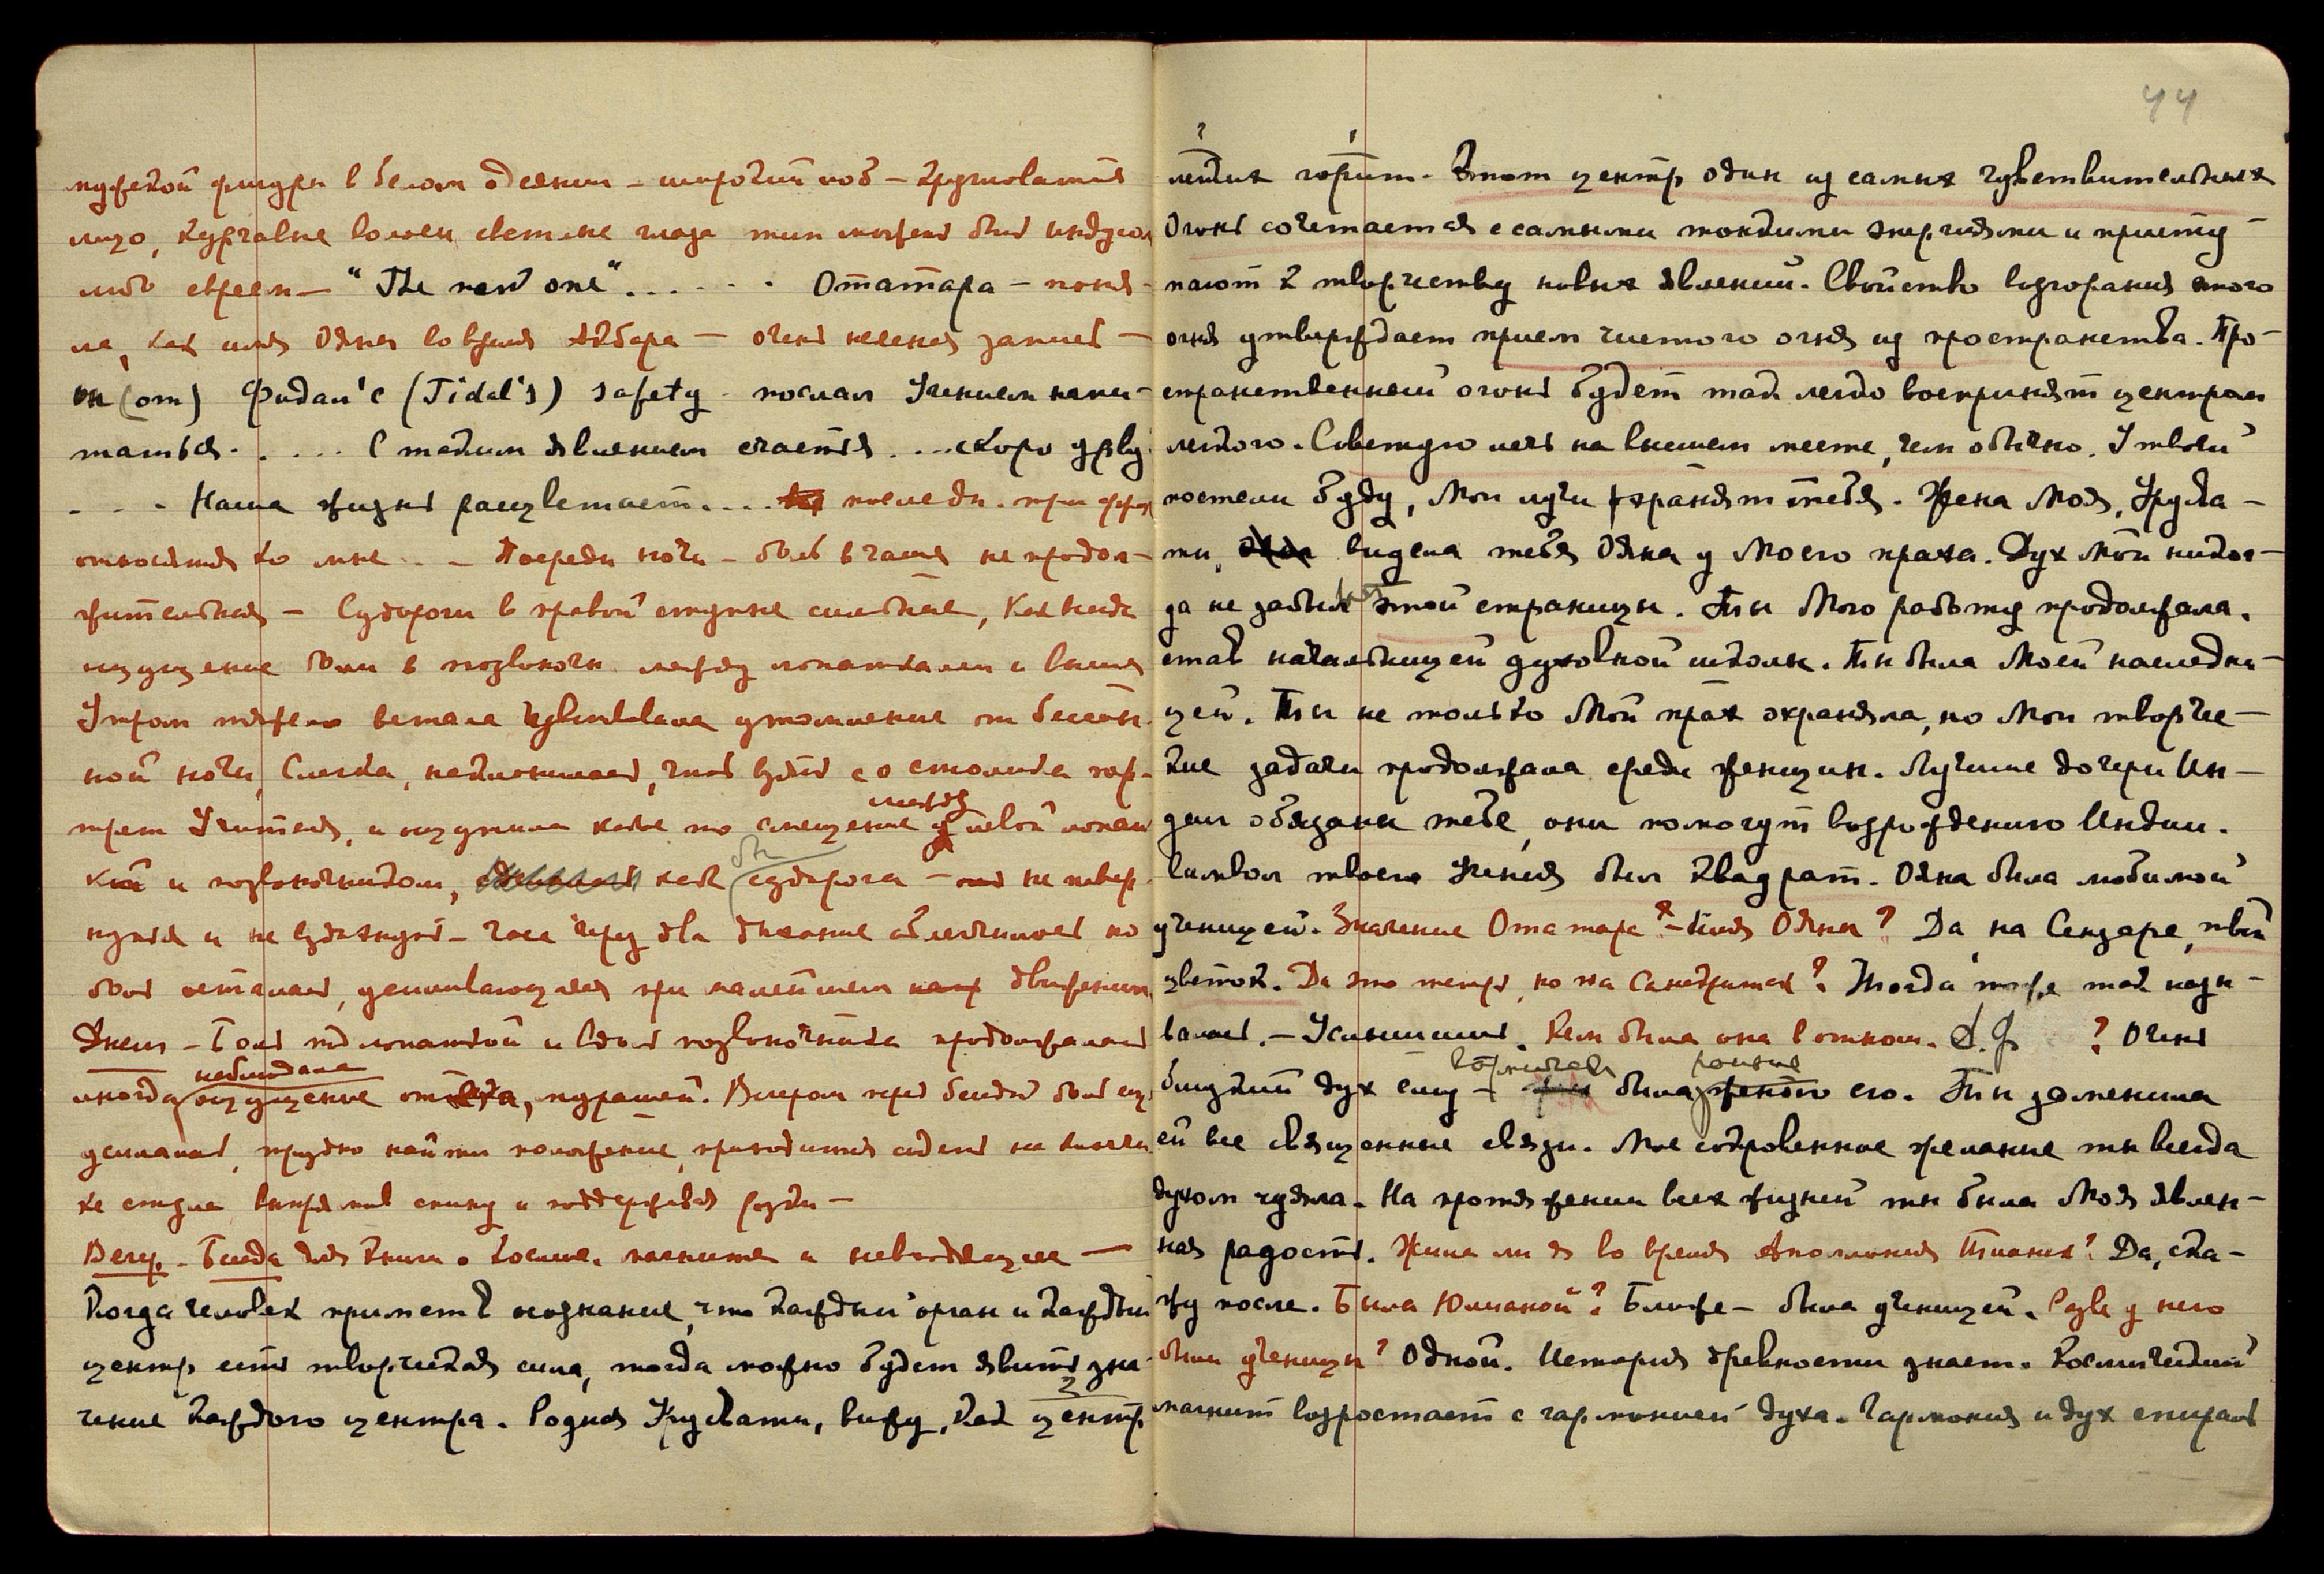 мужской фигуры в белом одеянии – широкий лоб – кругловатое
лицо, курчавые волосы, светлые глаза тип может быть индуса
либо еврея – "The new one" . . . . . . Отатара – поня-
ла, как имя Одяна во время Акбара – очень неясная запись –
он (от) Фидал'с (Fidal's) safety – послал Учением напи-
таться . . . . . С таким явлением счастья . . . скоро узрю
. . . Наша жизнь расцветает . . . . последн. три фраз
относятся ко мне . . – Посреди ночи – боль в чаше не продол-
жительная – Судороги в правой ступне сильные, Как вчера
ощущение боли в позвоночн. между лопатками и выше
Утром тяжело встала чувствовала утомление от бессон-
ной ночи, Слегка, наклонилась, чтоб взять со столика пор-
трет Учителя, и ощутила какое то смещение между левой лопат
кой и позвоночником, как бы судорога – не повер-
нуться и не вздохнуть – часа через два дыхание облегчилось но
боль осталась, усиливающаяся при малейшем движении
Днем – Боль под лопаткой и вдоль позвоночника продолжалась
иногда наблюдала ощущение мурашей. Вечером перед беседой боль
усилилась, трудно найти положение, приходится сидеть на высоком
же стуле выпрямив спину и поддерживая руки –
Вечер. – Беседа для Книги о Космич. магните и неводящее –
Когда человек примет в осознание, что каждый орган и каждый
центр есть творческая сила, тогда можно будет явить зна-
чение каждого центра. Родная Урусвати, вижу, как центр 2
44
легких горит. Этот центр один из самых чувствительных
Огонь сочетается с самыми тонкими энергиями и присту-
пают к творчеству новых явлений. Свойство возгорания этого
огня утверждает прием чистого огня из пространства. Про-
странственный огонь будет так легко воспринят центром
легкого. Советую лечь на высшем месте, чем обычно. У твоей
постели буду, Мои лучи хранят тебя. Жена Моя, Урусва-
ти, видела тебя Одяна у Моего праха. Дух Мой никог-
да не забыл этой страницы. Ты Мою работу продолжала,
став начальницей духовной школы. Ты была Моей наследни-
цей. Ты не только Мой прах охраняла, но Мои творчес-
кие задачи продолжала среди женщин. Лучшие дочери Ин-
дии обязаны тебе, они помогут возрождению Индии.
Символ твоего Учения был квадрат. Одяна была любимой
ученицей. Значение Отатара? – Имя Одяны? Да, на Сензаре, твой
цветок. Да это теперь, но на Санскритск? Тогда тоже так назы-
валась. – Услышишь. Кем была она в отнош. А. Д. ? Очень
близкий дух ему – была его. Ты заменила
ей все священные связи. Мое сокровенное желание ты всегда
духом чуяла. На протяжении всех жизней ты была Моя явлен-
ная радость. Жила ли я во время Аполлония Тианск? Да, ска-
жу после. Была Юлианой? Ближе – была ученицей. Разве у него
были ученицы? Одной. История древности знает. Космический
магнит возростает с гармонией духа. Гармония и дух спираль